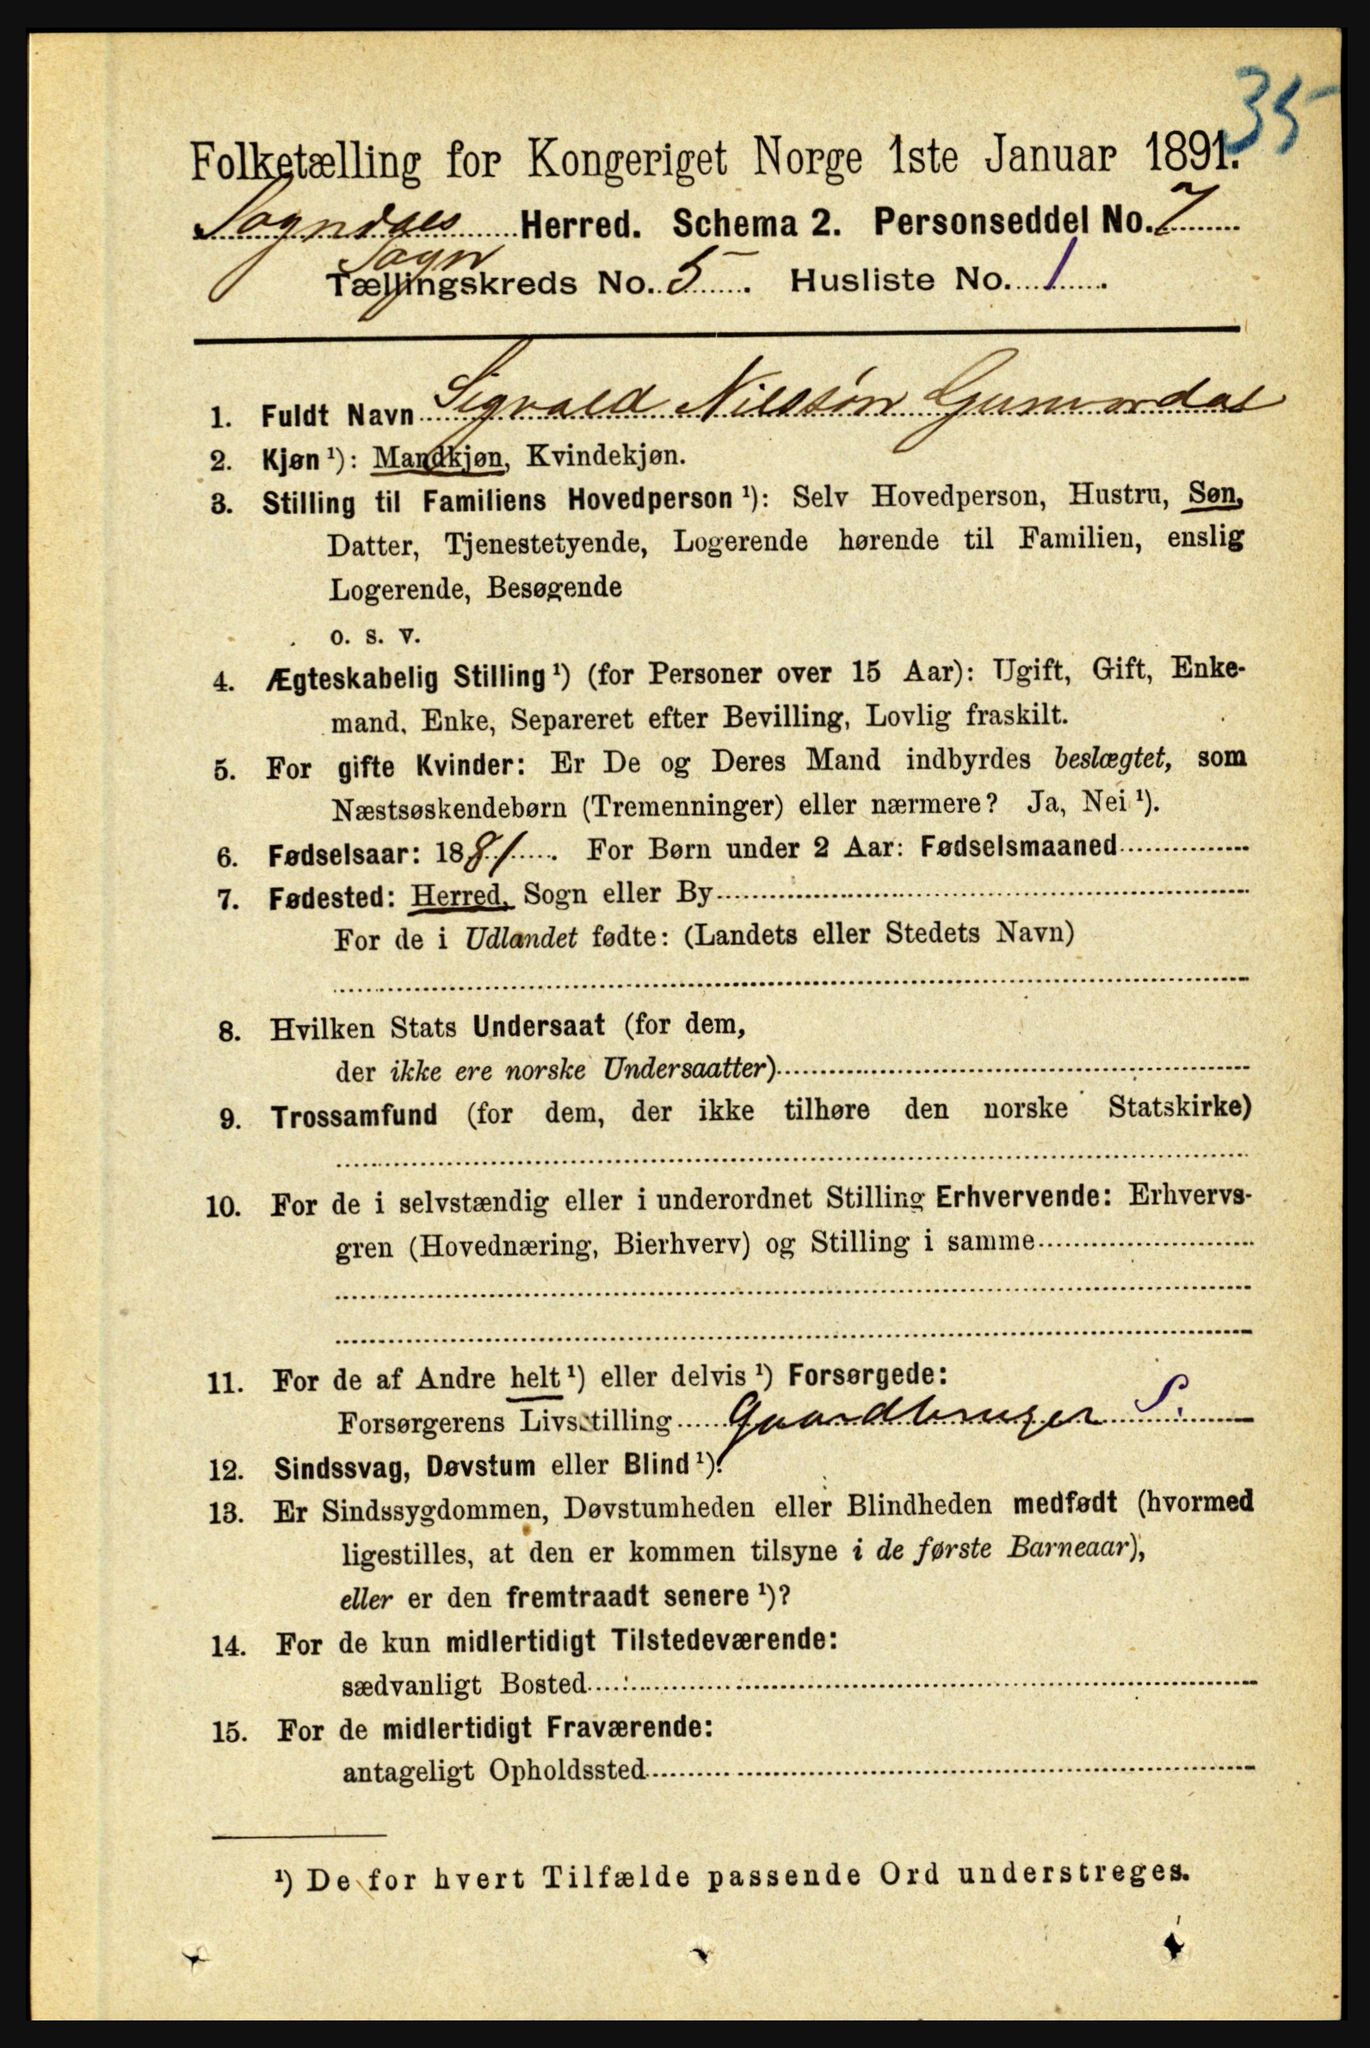 35
Folketælling for Kongeriget Norge 1ste Januar 1891.
Sogndals Herred. Schema 2. Personseddel No. 7
Sogn
Tællingskreds No. 5. Husliste No. 1.
1. Fuldt Navn Sigvald Nilssøn Gunvordal
2. Kjøn ¹): Mandkjøn, Kvindekjøn.
3. Stilling til Familiens Hovedperson ¹): Selv Hovedperson, Hustru, Søn,
Datter, Tjenestetyende, Logerende hørende til Familien, enslig
Logerende, Besøgende
o. s. v.
4. Ægteskabelig Stilling ¹) (for Personer over 15 Aar): Ugift, Gift, Enke-
mand, Enke, Separeret efter Bevilling, Lovlig fraskilt.
5. For gifte Kvinder: Er De og Deres Mand indbyrdes beslægtet, som
Næstsøskendebørn (Tremenninger) eller nærmere? Ja, Nei ¹).
6. Fødselsaar: 1881. For Børn under 2 Aar: Fødselsmaaned
7. Fødested: Herred, Sogn eller By
For de i Udlandet fødte: (Landets eller Stedets Navn)
8. Hvilken Stats Undersaat (for dem,
der ikke ere norske Undersaatter)
9. Trossamfund (for dem, der ikke tilhøre den norske Statskirke)
10. For de i selvstændig eller i underordnet Stilling Erhvervende: Erhvervs-
gren (Hovednæring, Bierhverv) og Stilling i samme
11. For de af Andre helt ¹) eller delvis ¹) Forsørgede:
Forsørgerens Livsstilling Gaardbruger S.
12. Sindssvag, Døvstum eller Blind ¹).
13. Er Sindssygdommen, Døvstumheden eller Blindheden medfødt (hvormed
ligestilles, at den er kommen tilsyne i de første Barneaar),
eller er den fremtraadt senere ¹)?
14. For de kun midlertidigt Tilstedeværende:
sædvanligt Bosted
15. For de midlertidigt Fraværende:
antageligt Opholdssted
¹) De for hvert Tilfælde passende Ord understreges.